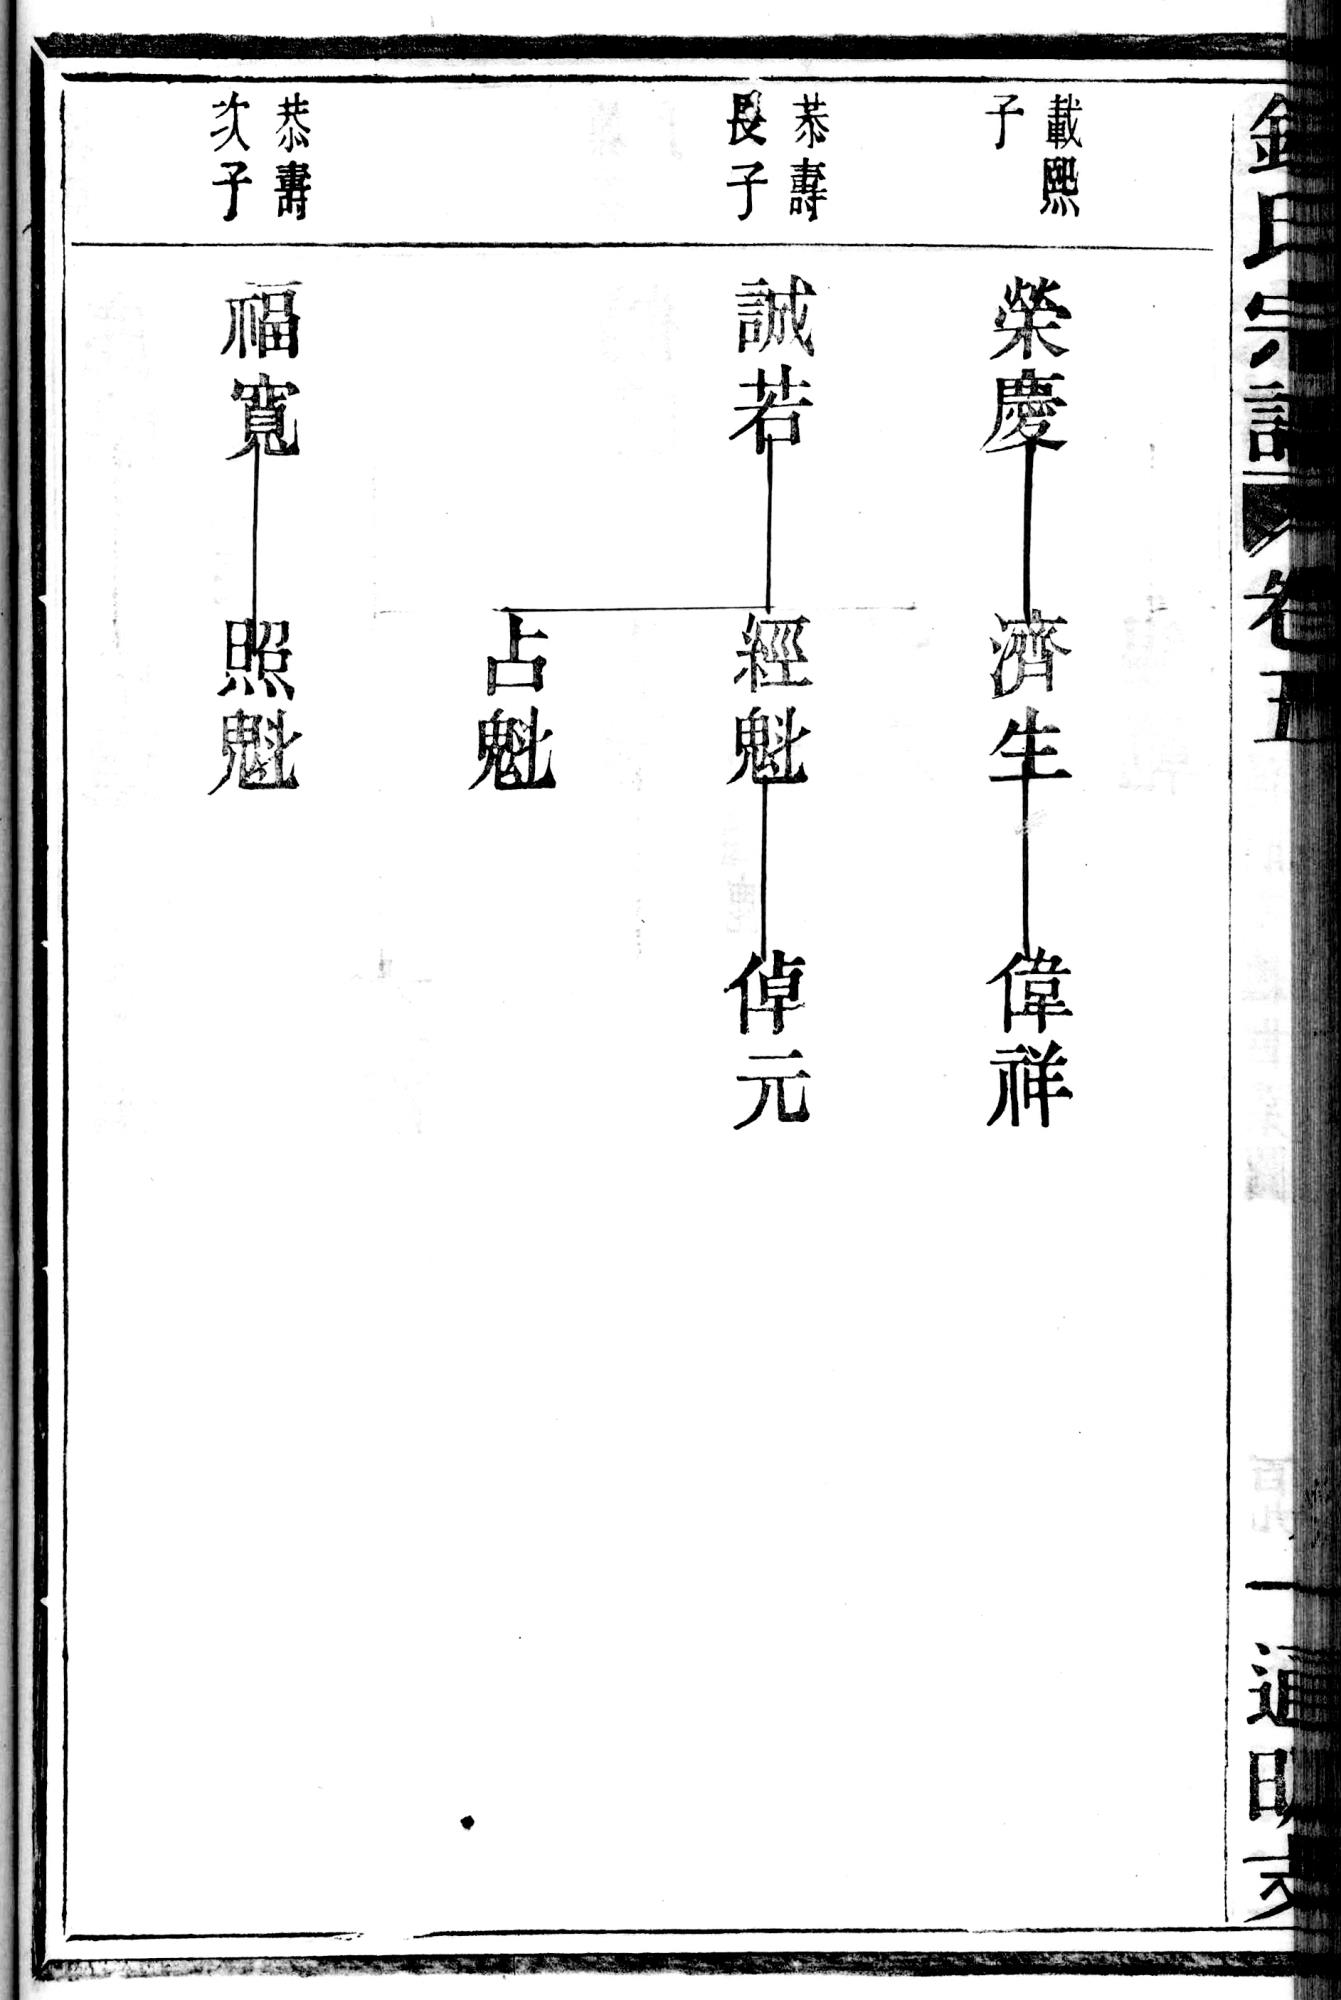 氏宗譜 卷五 一 通明支
載熙
子
榮慶
濟生
偉祥
恭壽
長子
誠若
經魁
倬元
占魁
恭壽
次子
福寬
照魁